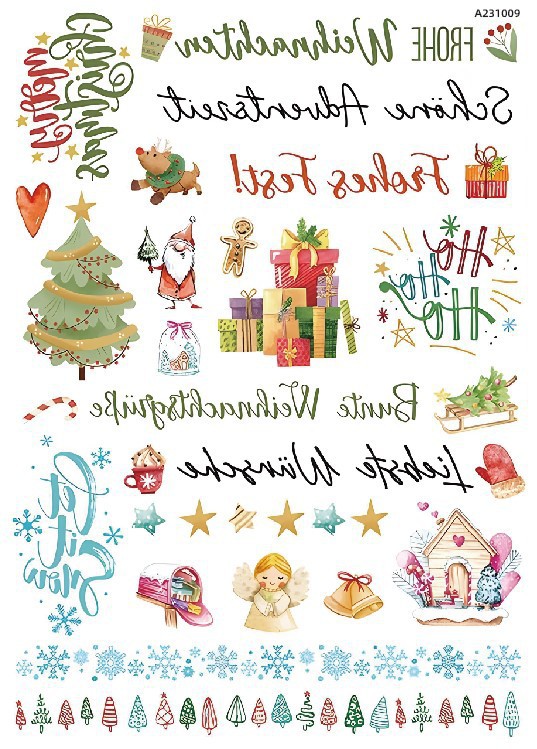 A231009
FROHE Weihnachten
Merry
Christmas
Schöne Adventszeit
Frohes Fest!
Ho
Ho
Ho
Bunte Weihnachtsgrüße
Liebste Wünsche
Let
it
Snow